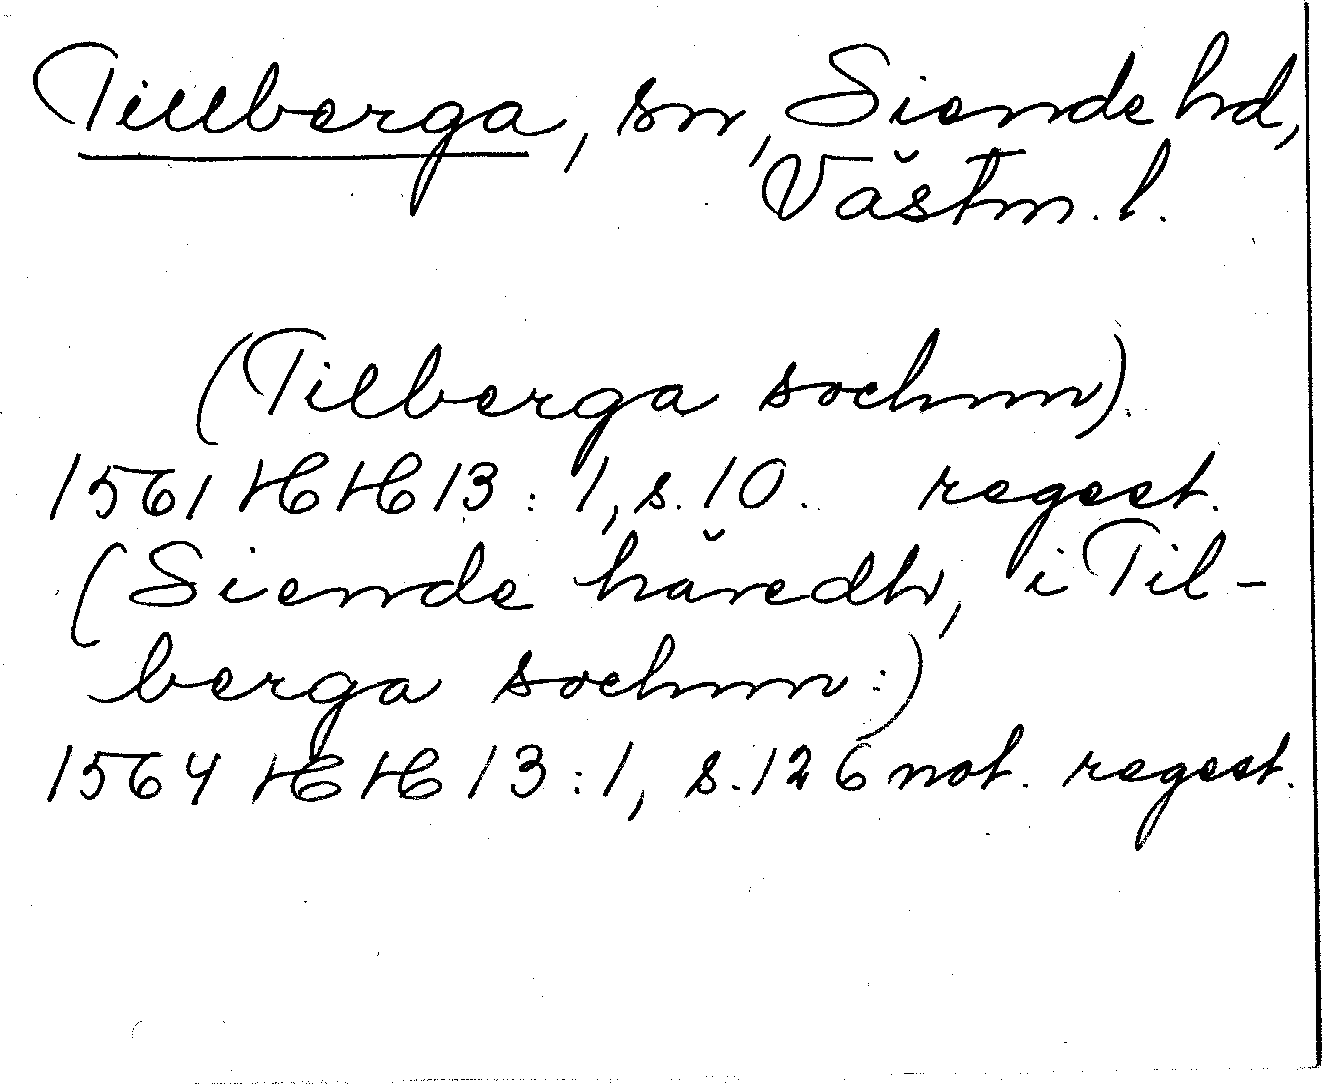 Tillberga, sn, Siende hd,
Västm. l.
(Tilberga sochnn).
1561 HH 13:1, s. 10. regest.
(Siende häredh, i Til-
berga sochnn:)
1564 HH 13:1, s. 126 not. regest.